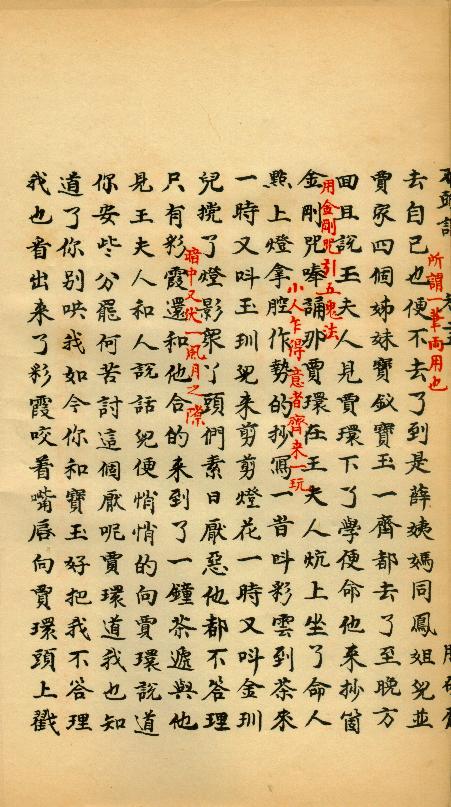 去自已也便不去了到是薛姨媽同鳳姐兒並
所謂一筆両用也
賈家四個姊妹寶釵寶玉一齊都去了至晚方
回且說王夫人見賈環下了學便命他来抄箇
用金剛咒引五鬼法
金剛咒唪誦那賈環在王夫人炕上坐了命人
小人乍得意者齊来一玩
點上燈拿腔作勢的抄寫一昔呌彩雲到茶來
一時又呌玉玔兒来剪剪燈花一時又呌金玔
兒攩了燈影衆丫頭們素日厭惡他都不答理
暗中又伏一風月之隙
只有彩霞還和他合的来到了一鐘茶遞與他
見王夫人和人說話兒便悄悄的向賈環說道
你安些分罷何苦討這個厭呢賈環道我也知
道了你别哄我如今你和寶玉好把我不答理
我也看出来了彩霞咬着嘴唇向賈環頭上戳